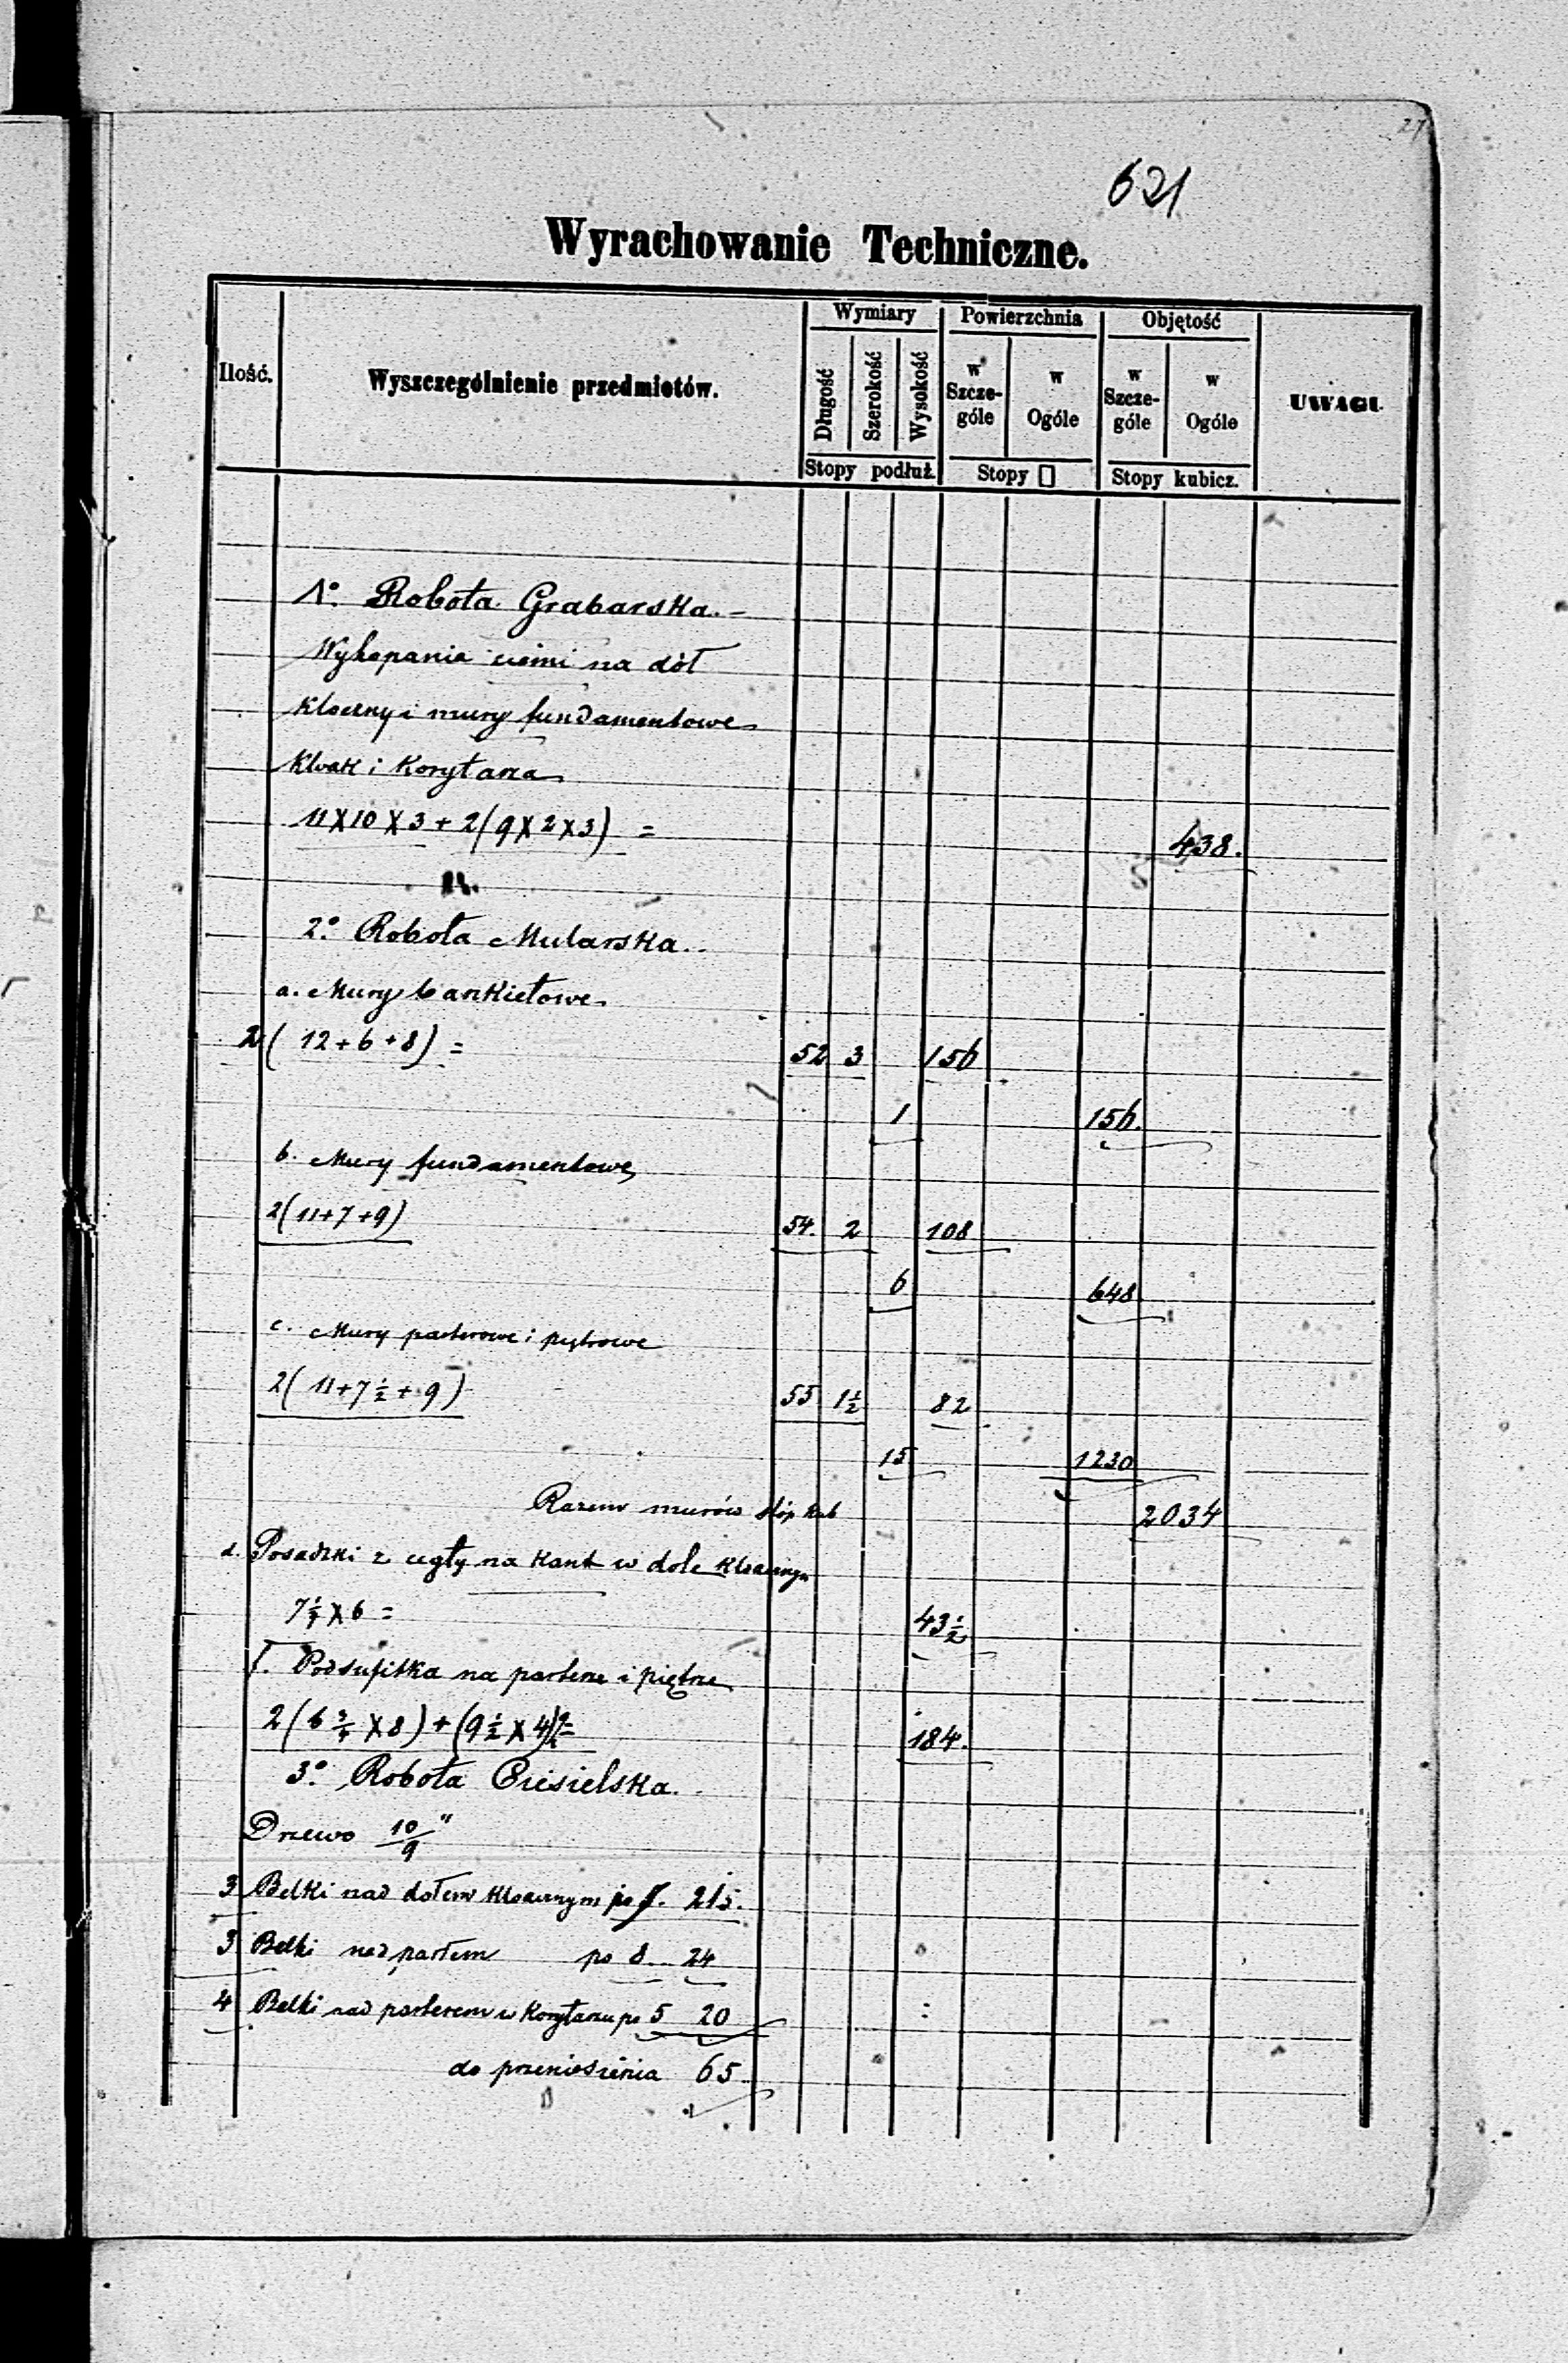 27
621
Wyrachowanie Techniczne.
Ilość.
Wyszczególnienie przedmiotów.
Wymiary
Powierzchnia
Objętość
UWAGI.
Długość
Szerokość
Wysokość
w Szcze-góle
w Ogóle
w Szcze-góle
w Ogóle
Stopy podłuż.
Stopy □
Stopy kubicz.
1º. Robota Grabarska.-
Wykopania ziemi na dół
kloczny i mury fundamentowe
kloak i Korytarza
11X10X3+2(9X2X3) = 438.
2º. Robota Mularska.
a. Mury bankietowe.
2 (12+6+8) = 52 3 156
1 156.
b. Mury fundamentowe
2(11+7+9) 54. 2 108
6 648
c. Mury parterowe i piętrowe
2(11+7½+9) 55 1½ 82
15 1230
Razem murów stóp kub 2034
d. Posadzki z cegły na kant w dole kloacznym
7¼X6= 43½
f. Podsufitka na parterze i piętrze
2(6¾X8)+(9½X4)2= 184.
3º. Robota Ciesielska.
Drzewo 10/9"
3 Belki nad dołem kloacznym po 7. 21.
3 Belki nad po 8 24
4 Belki nad parterem w Korytarzu po 5 20
do przeniesienia 65